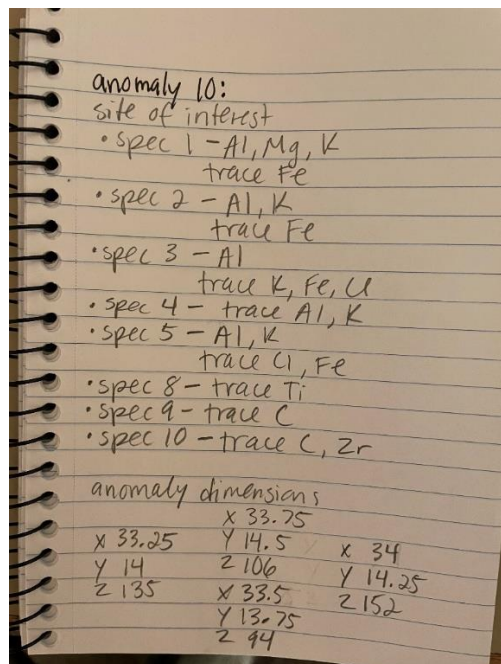 anomaly 10:
site of interest
• spec 1 - Al, Mg, K
trace Fe
• spec 2 - Al, K
trace Fe
• spec 3 - Al
trace K, Fe, Cl
• spec 4 - trace Al, K
• spec 5 - Al, K
trace Cl, Fe
• spec 8 - trace Ti
• spec 9 - trace C
• spec 10 - trace C, Zr
anomaly dimensions
x 33.75
x 33.25 y 14.5 x 34
y 14 z 106 y 14.25
z 135 x 33.5 z 152
y 13.75
z 94